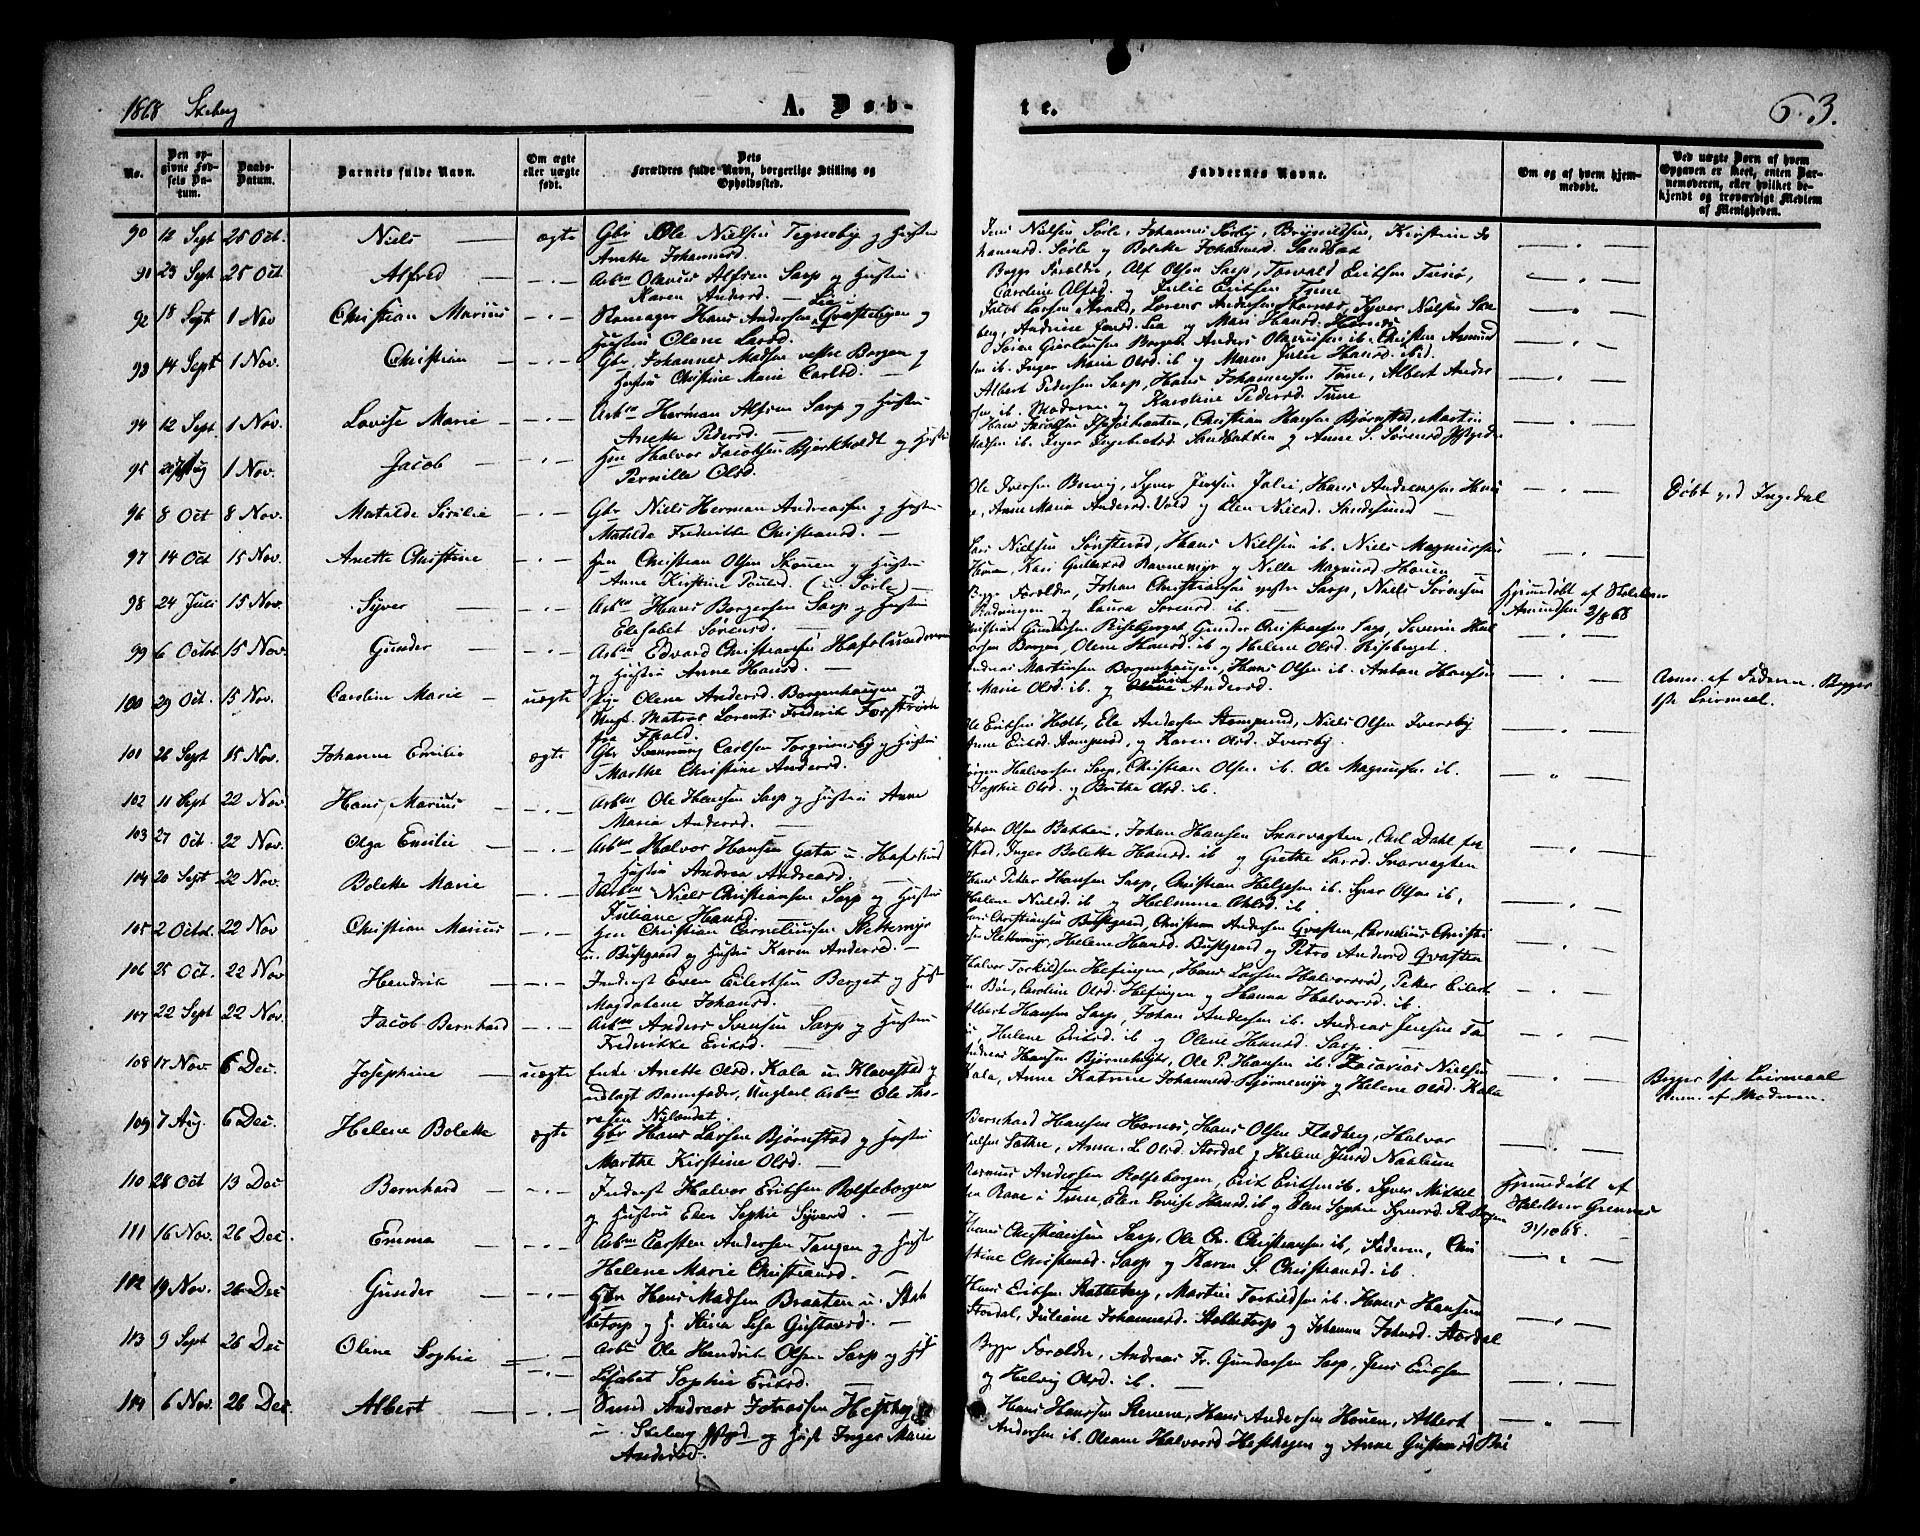 1868 Skeberg
A. Døb-
te.
63.
No.
Den opgivne Fødsels Datum.
Daabs-Datum.
Barnets fulde Navn.
Om ægte eller uægte født.
Dets Forældres fulde Navn, borgerlige Stilling og Opholdssted.
Faddernes Navne.
Om og af hvem hjemmedøbt.
Ved uægte Børn af hvem Opgaven er skeet, enten Barnemoderen, eller hvilket bekjendt og troværdigt Medlem af Menigheden.
90 12 Sept 25 Oct. Niels ægte Gbr Ole Nielsen Tegneby og Hustru
Anette Johannesd.
Jens Nielsen Sørle, Johannes
Sørle og Bolette Johannesd. Sandbak
91 23 Sept 25 Oct Alfred Arbm Olavus Alfsen Sarp og Hustru
Karen Andersd.
Begge Forældre, Alf Olsen Sarp, Torvald Eriksen Tunø,
Caroline Alfsd. og Julie Eriksen Tune
92 18 Sept 1 Nov Christian Marius Skomager Hans Andersen Qvastebyen og
Hustru Olene Larsd.
Jacob Larsen Strand, Lorens Andersen Skornæs, Syver Nielsen Ske
berg, Andrine Jensd. Lia og Mari Hansd. Hornæs
93 14 Sept 1 Nov. Christian Gbr. Johannes Madsen vestre Borgen og
Hustru Christine Marie Carlsd.
Søren Gierlausen Borgen, Anders Olaussen ib. Christen Amund
sen ib. Inger Marie Olsd. ib og Maren Julie Hansd. ibid.
94 12 Sept 1 Nov. Lovise Marie Arbm Herman Alfsen Sarp og Hustru
Anette Pedersd.
Albert Pedersen Sarp, Hans Johannesen Tune, Albert Ander
sen ib. Moderen og Karoline Pedersd. Tune
95 Aug 1 Nov. Jacob Hm Halvor Jacobsen Bjørkholdt og Hustru
Pernille Olsd.
Hans Jacobsen, Christian Hansen Bjørnstad, Martin
Madsen ib. Inger Ingebretsd. Sandbakken og Anne S. Sørensd
96 8 Oct 8 Nov. Matilde Sirilie Gbr. Niels Herman Andreassen og Hustru
Matilde Fredrikke Christiansd.
Ole Iversen Brevig, Syver Jensen, Hans Andreassen
Anne Maria Andersd. Vold og Elen Nielsd. Sandesund
Døbt ved Ingedal
97 14 Oct 15 Nov. Anette Christine Hm Christian Olsen Skouen og Hustru
Anne Kirstine Poulsd. (u. Sørle)
Lars Nielsen Sønsterød, Hans Nielsen ib. Niels Magnussen
Houen, Kari Gulbrsd Ravnemyr og Nille Magnusd Houen
98 24 Juli 15 Nov. Syver Arbm Hans Borgersen Sarp og Hustru
Elisabet Sørensd.
Begge Forældre, Johan Christiansen vestre Sarp, Niels Sørensen
og Laura Sørensd ib.
Hjemmedøbt af
Amundsen 2/8 68
99 6 Octob 15 Nov. Gunder Arbm Edvard Christiansen Hafslundsveren
og Hustru Anne Hansd.
Christian Gundersen Risebjerget, Gunder Christiansen Sarp, Severin Hal
vorsen Borgen, Olene Hansd. ib og Helene Olsd. Risebjerget.
100 29 Oct. 15 Nov. Caroline Marie uægte Pige Olene Andersd. Borgenhaugen og
Ungk. Matros Lorents Fredrik Forstrøm
fra Fkald.
Andreas Martinsen Borgenhaugen, Hans Olsen ib. Anton Hansen
Marie Olsd. ib. og Lina Andersd.
Anm. af Faderen. Begges
1ste Leiermaal.
101 26 Sept 15 Nov. Johanne Emilie ægte Gbr Svenning Carlsen Torgrimsby og Hustru
Marthe Christine Andersd.
Ole Eriksen Holt, Ele Andersen Stompsund, Niels Olsen Iversby
Anne Eriksd. og Karen Olsd. Iversby.
102 11 Sept 22 Nov. Hans Marius Arbm Ole Hansen Sarp og Hustru Anne
Maria Andersd.
Jørgen Halvorsen Sarp, Christian Olsen ib. Ole Magnussen ib.
Sophie Olsd. og Berthe Olsd. ib.
103 27 Oct. 22 Nov. Olga Emilie Arbm Halvor Hansen Gata u. Hafslund
og Hustru Andrea Andreasd.
Johan Olsen Bakken, Johan Hansen Snarvagten, Carl Dahl
Inger Bolette Hansd. ib og Grethe Larsd. Snarvagten
104 20 Sept 22 Nov. Bolette Marie Arbm Niels Christiansen Sarp og Hustru
Juliane Hansd.
Hans Peter Hansen Sarp, Christian Helgesen ib. Syver Olsen ib,
Helene Nielsd. ib og Helmine Olsd. ib.
105 2 Octob. 22 Nov Christian Marius Hm Christian Corneliussen Slettemyr
u. Bustgaard og Hustru Karen Andersd.
Lars Christiansen Bustgaard, Christian Andersen Qvasten, Cornelius Christi
sen Slettemyr, Helene Hansd. Bustgaard og Petro Andersd Qvasten
106 25 Oct. 22 Nov Hendrik Inderst Even Eilertsen Berget og Hust
Magdalene Johansd.
Halvor Torkildsen Hefingen, Hans Larsen Halvorsrød, Petter Eilert
sen Bøe, Caroline Olsd. Hefingen og Hanna Halvorsd. ib.
107 22 Sept 22 Nov. Jacob Bernhard Arbm Anders Svensen Sarp og Hustru
Fredrikke Eriksd.
Albert Hansen Sarp, Johan Andersen ib. Andreas Jensen
Helene Eriksd. ib og Olene Hansd. Sarp
108 17 Nov. 6 Dec. Josephine uægte Enke Anette Olsd. Kala u. Klavestad og
udlagt Barnefader, Ungkarl Arbm Ole Tho
resen Nylandet.
Andreas Hansen Bjørnemyr, Ole P. Hansen ib. Zacarias Nielsen
Kala, Anne Katrine Johannesd Bjørnemyr og Helene Olsd. Kala
Begges 1ste Leiermaal
Anm. af Moderen.
109 7 Aug. 6 Dec. Helene Bolette ægte Gbr Hans Larsen Bjørnstad og Hustru
Marthe Kirstine Olsd.
Bernhard Hansen Hornæs, Hans Olsen Fladberg, Halvor
Nielsen Sathre, Anne L. Olsd. Stordal og Helene Jensd Naalum
110 28 Oct 13 Dec Bernhard Inderst Halvor Eriksen Rolfseborgen
og Hustru Elen Sophie Syversd.
Rasmus Andersen Rolfseborgen, Erik Eriksen ib. Syver Mikkel
sen Raae i Tune, Elen Lovise Hansd. ib og Elen Sophie Syversd.
Hjemmedøbt af
31/10 68.
111 16 Nov. 26 Dec. Emma Arbm Carsten Andersen Tangen og Hustr
Helene Marie Christiansd.
Hans Christiansen Sarp, Ole Chr. Christiansen ib, Faderen, Chri
stine Christensd. Sarp og Karen S. Christiansd. ib.
112 19 Nov. 26 Dec Gunder Gbr Hans Madsen Braaten u. Stub
betorp og H. Stina Lisa Gustavsd.
Hans Eriksen Stubbetorp, Martin Torkildsen ib. Hans Hansen
Stordal, Juliane Johannesd. Stubbetorp og Johanne Johnsd. Stordal
113 9 Sept 26 Dec Olene Sophie Arbm Ole Hendrik Olsen Sarp og H.
Lisabet Sophie Eriksd.
Begge Forældre, Andreas Fr. Gundersen Sarp, Jens Eriksen
og Helvig Olsd. ib.
114 6 Nov. 26 Dec Albert Smed Andreas Johansen Hesthagen
u. Skeberg og Hust Inger Marie
Andersd.
Hans Hansen Stenene, Hans Andersen Houen, Albert
Andersen ib. Oleane Halvorsd Hesthagen og Anne Gustavsd Bøe